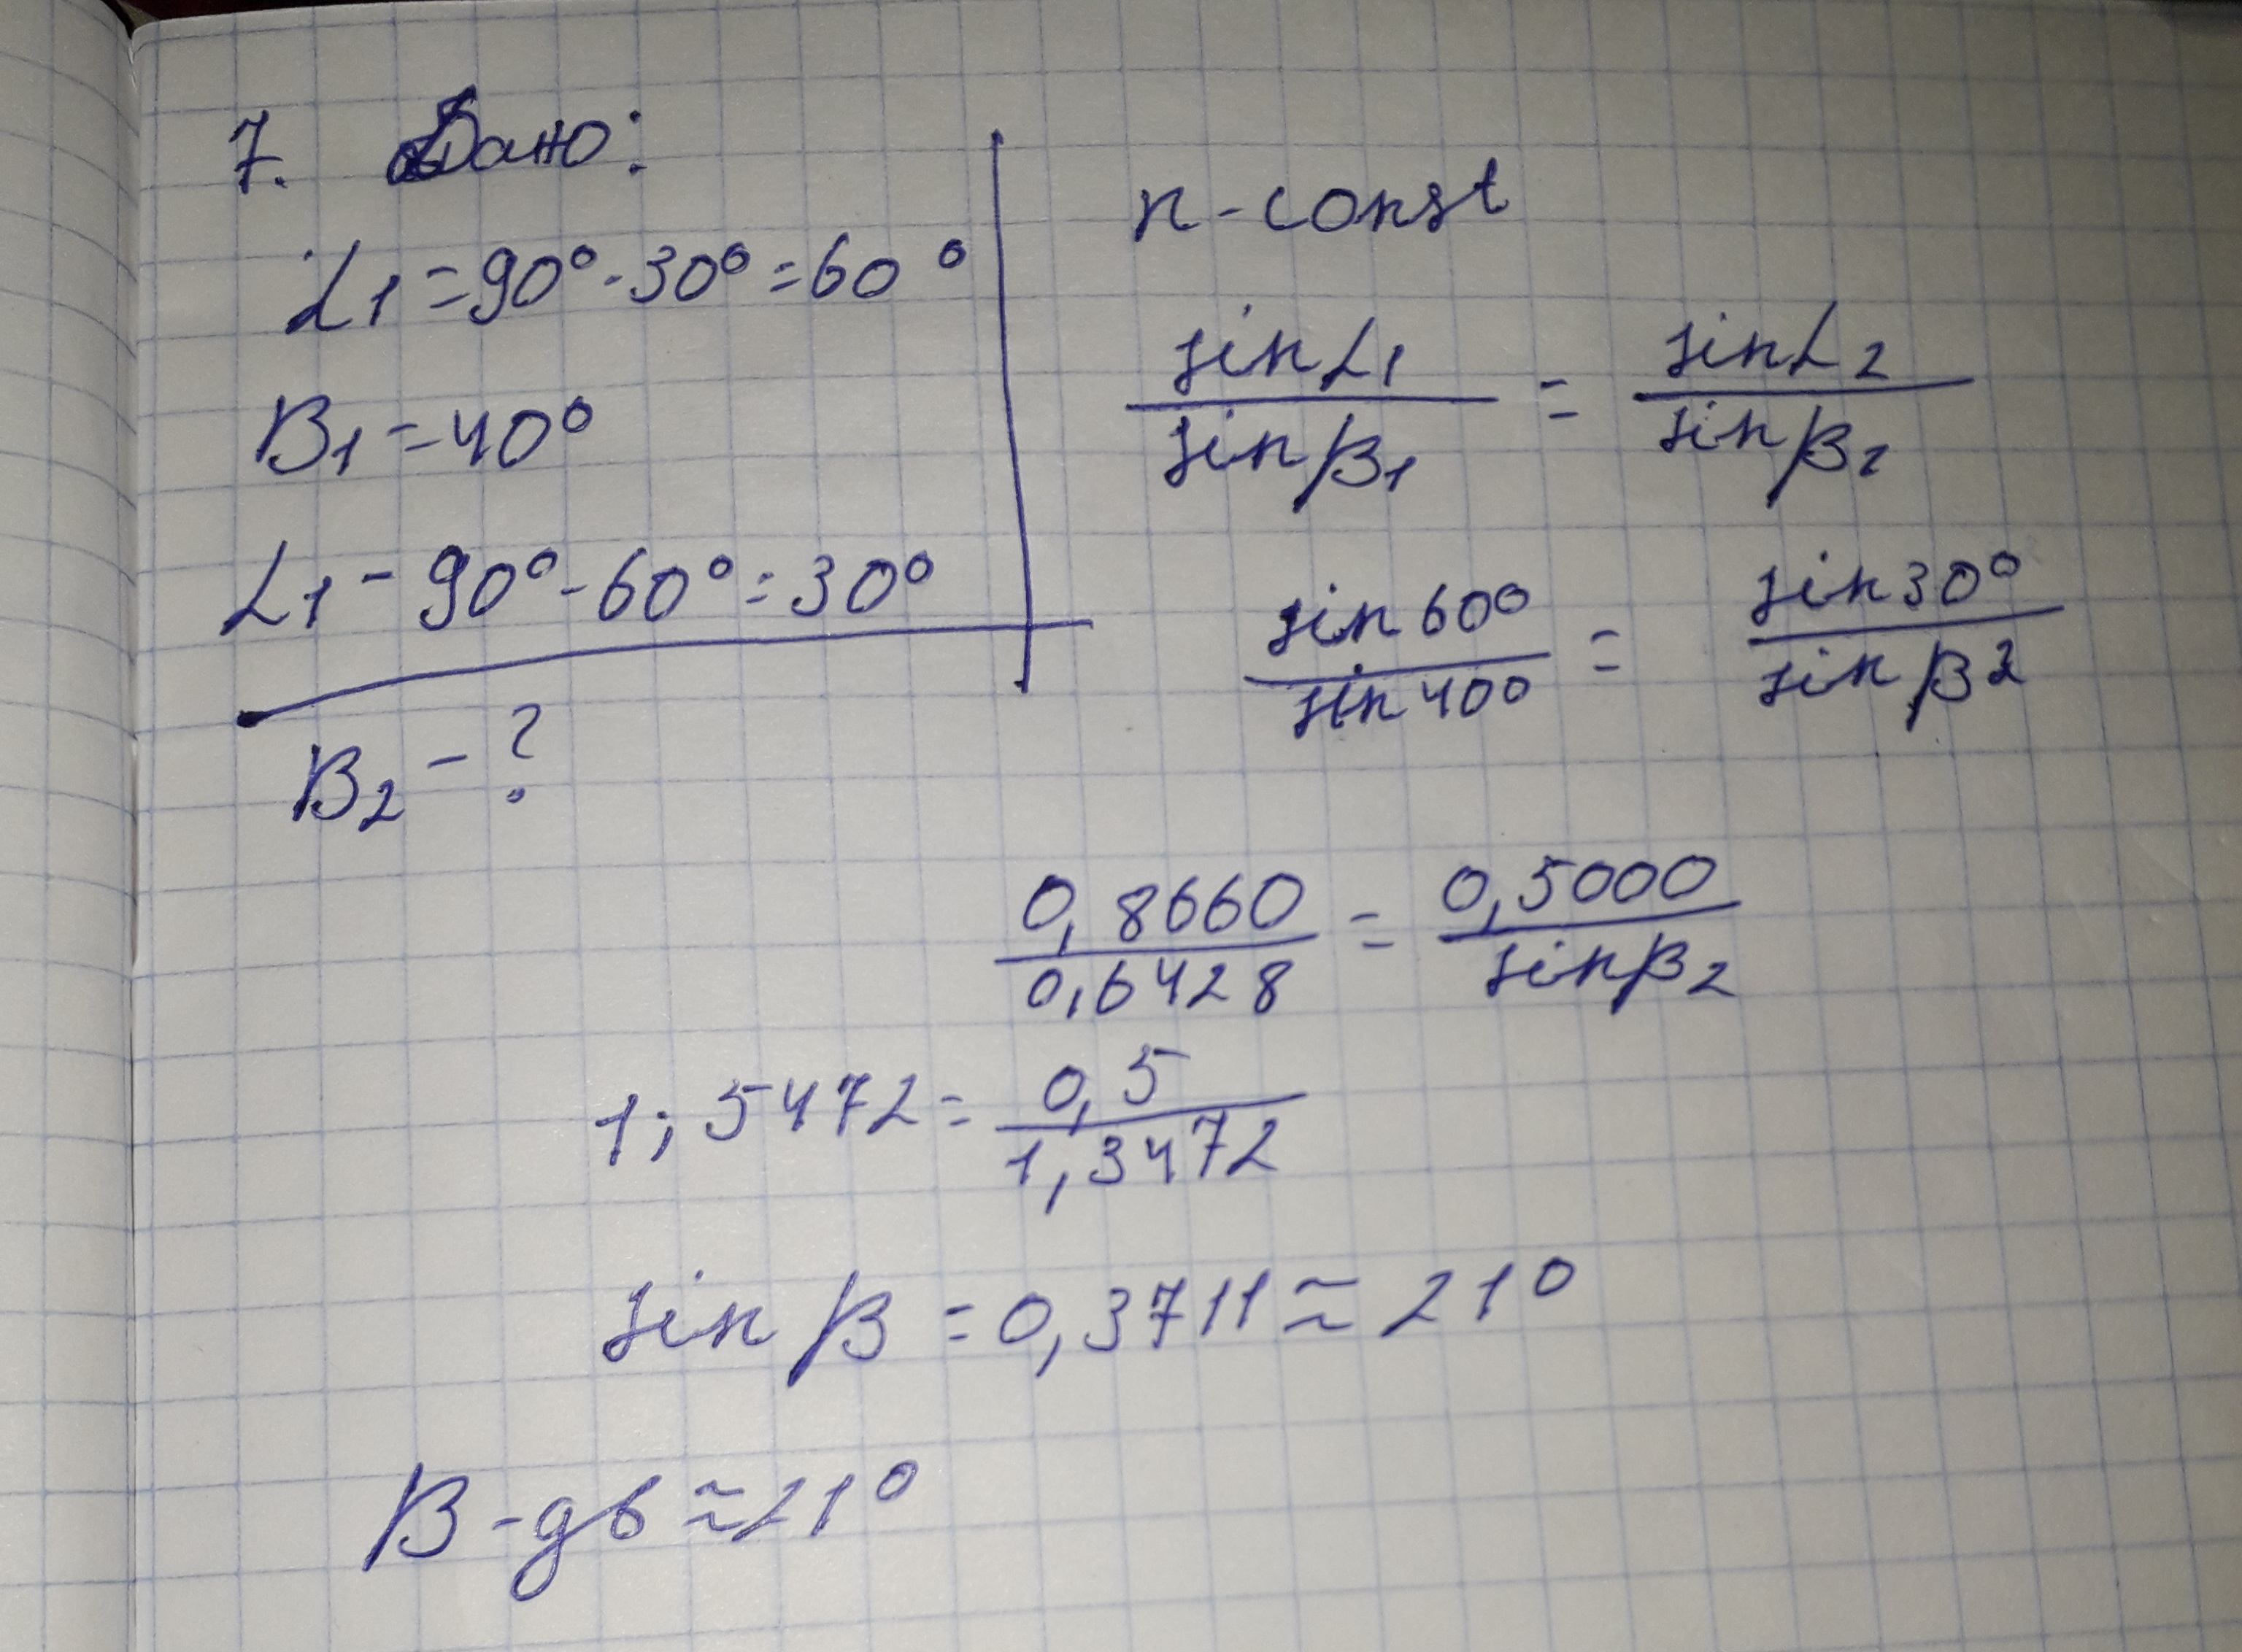 7. Дано:
α1 = 90° - 30° = 60°
B1 = 40°
α1 - 90° - 60° = 30°
B2 - ?
n - const
sinα1 / sinβ1 = sinα2 / sinβ2
sin60° / sin40° = sin30° / sinβ2
0,8660 / 0,6428 = 0,5000 / sinβ2
1; 5472 = 0,5 / 1,3472
sin β = 0,3711 ≈ 21°
B - ≈ 21°